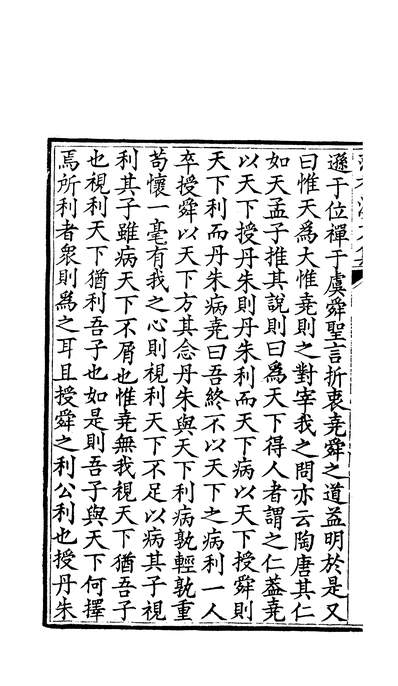 遜于位禪于虞舜聖言折衷堯舜之道益明於是又
曰惟天爲大惟堯則之對宰我之問亦云陶唐其仁
如天孟子推其說則曰爲天下得人者謂之仁葢堯
以天下授丹朱則丹朱利而天下病以天下授舜則
天下利而丹朱病堯曰吾終不以天下之病利一人
卒授舜以天下方其念丹朱與天下利病孰輕孰重
苟懷一毫有我之心則視利天下不足以病其子視
利其子雖病天下不屑也惟堯無我視天下猶吾子
也視利天下猶利吾子也如是則吾子與天下何擇
焉所利者衆則爲之耳且授舜之利公利也授丹朱